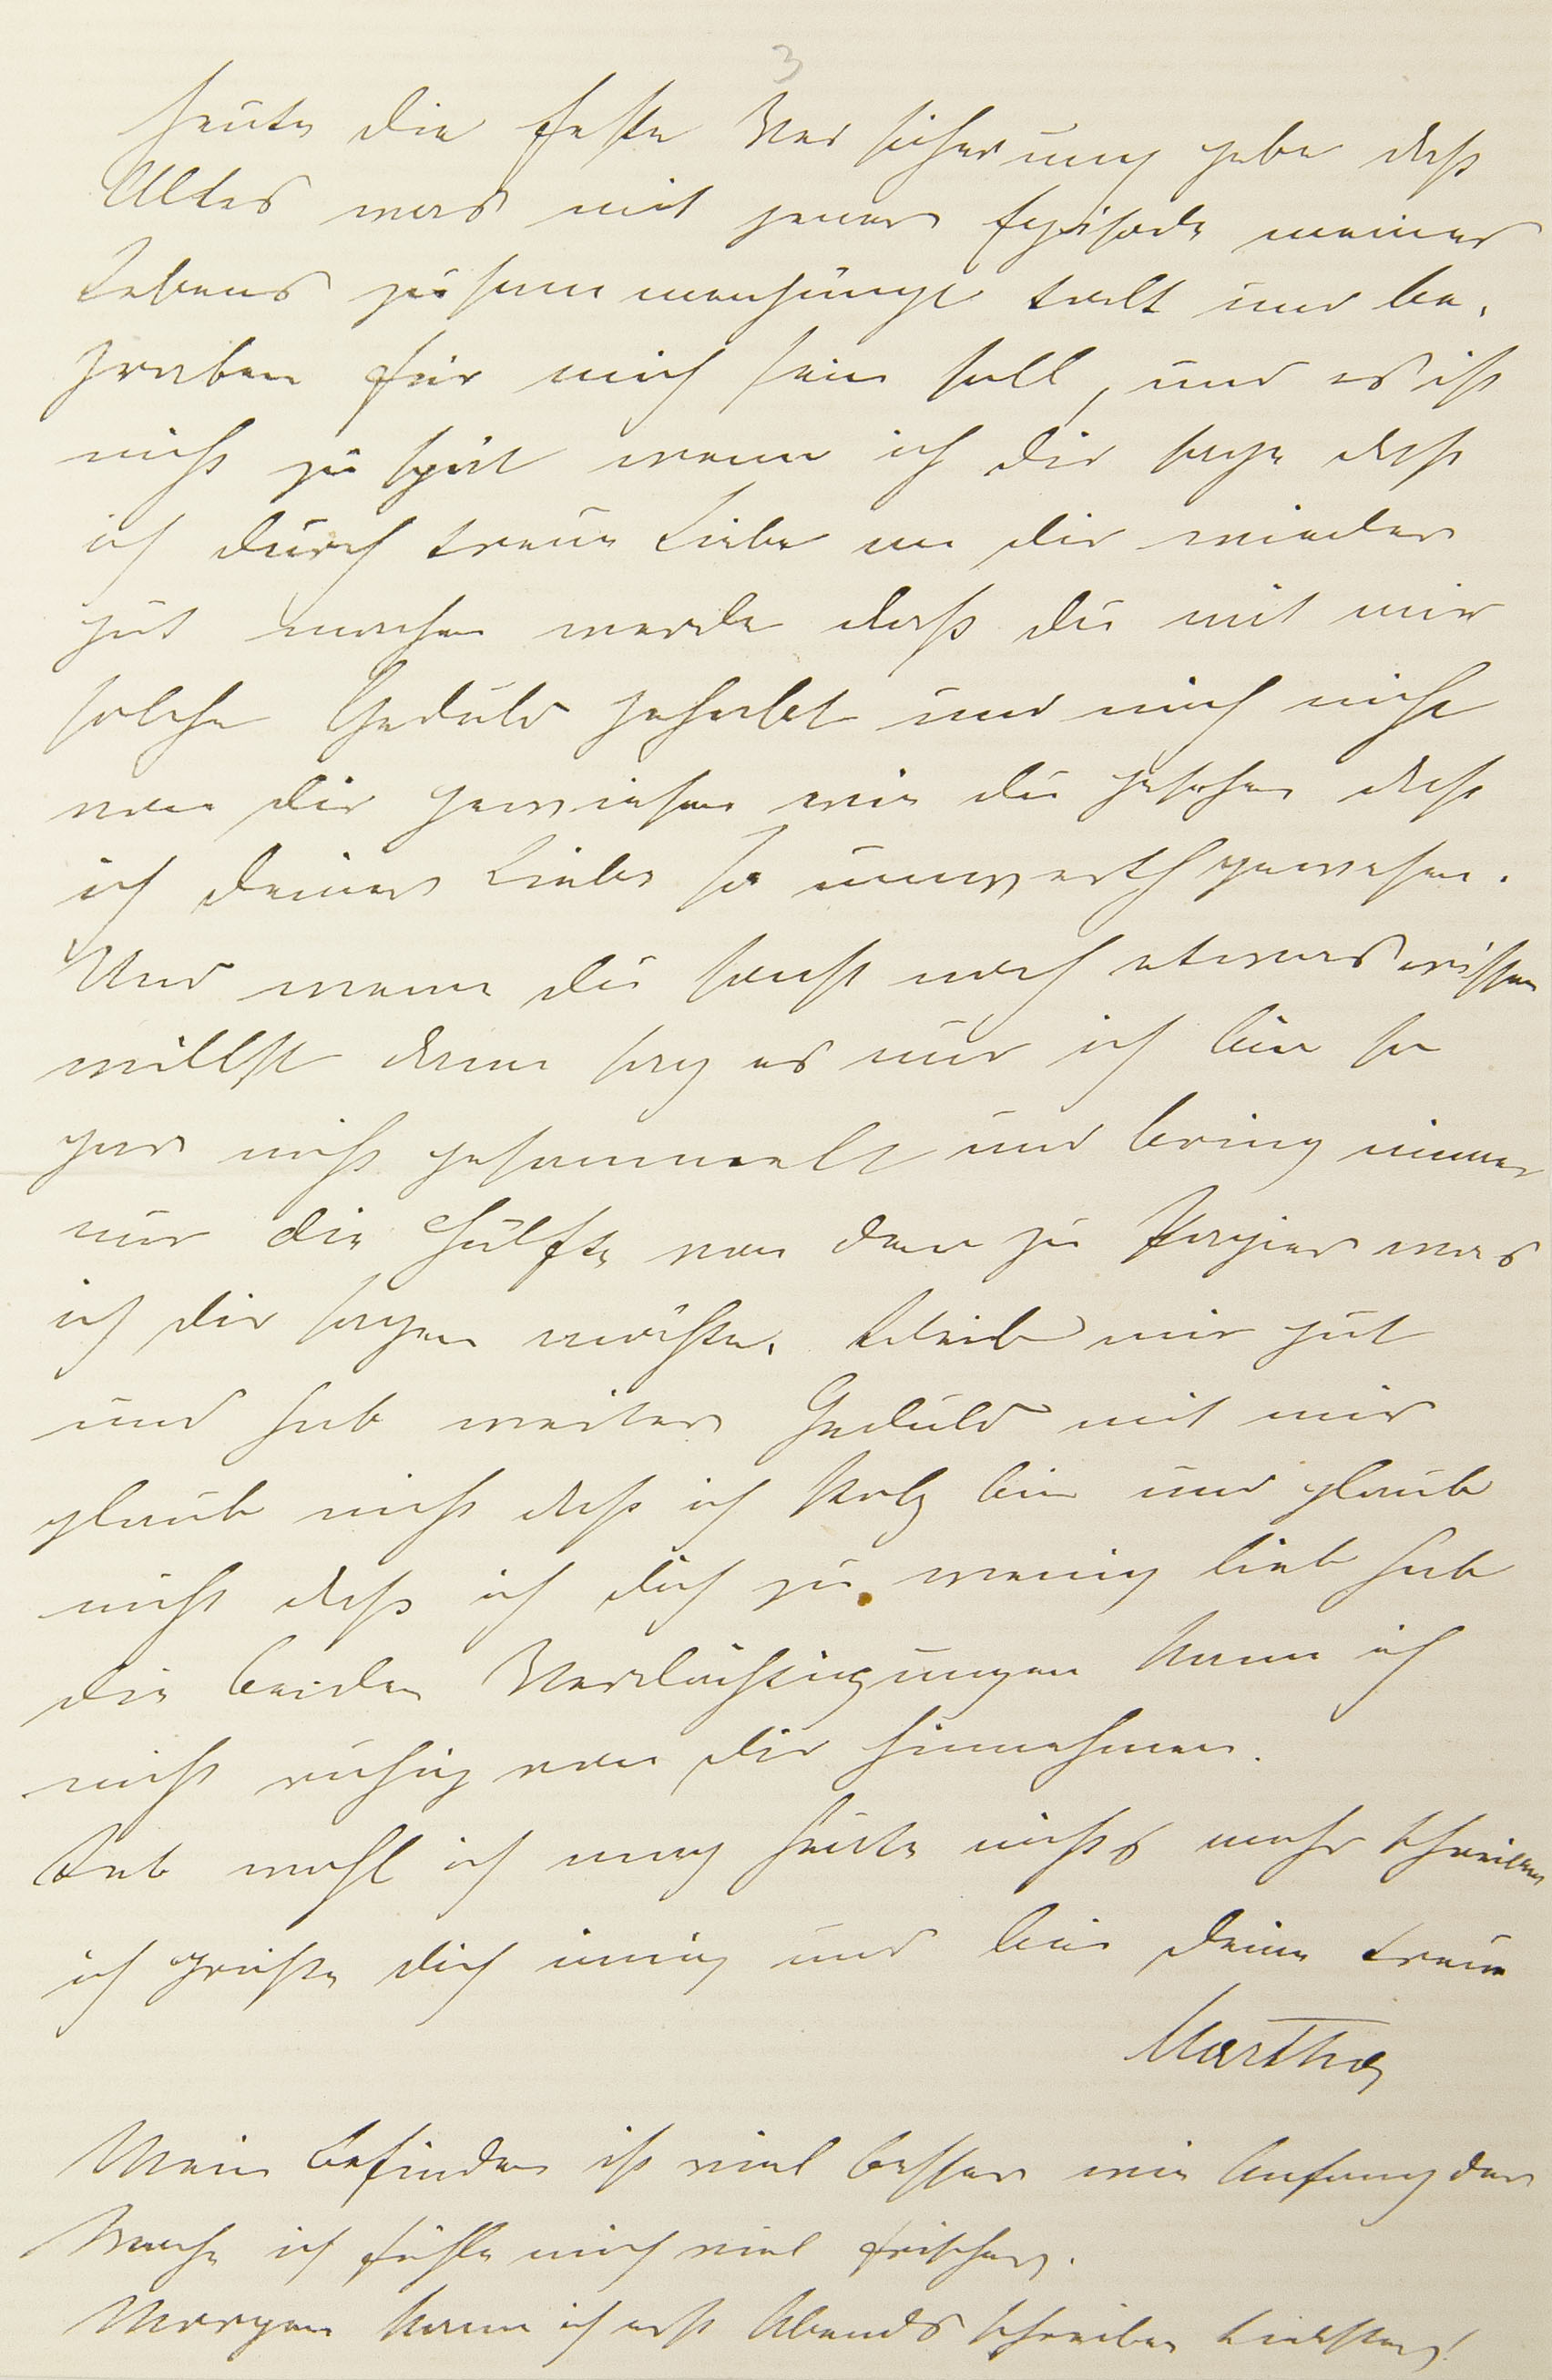 3
heute die feste Versicherung gebe daß
Alles was mit jener Episode meines
Lebens zusammenhängt todt und be-
graben für mich sein soll, und es ist
nicht zu spät wenn ich dir sage daß
ich durch treue Liebe an dir wieder
gut machen werde daß du mit mir
solche Geduld gehabt und mich nicht
von dir gewiesen wie du gesehen daß
ich deiner Liebe so unwerth gewesen.
Und wenn du sonst noch etwas wissen
willst dann sag es nur ich bin so
gar nicht gesammelt und bring immer
nur die Hälfte von dem zu Papier was
ich dir sagen möchte. Bleib mir gut
und hab weiter Geduld mit mir
glaub nicht daß ich stolz bin und glaub
nicht daß ich dich zu wenig lieb hab
die beiden Verdächtigungen kann ich
nicht ruhig von dir hinnehmen.
Leb wohl ich mag heute nichts mehr schreiben
ich grüße dich innig und bin deine treue
Martha
Mein Befinden ist viel besser wie Anfang der
Woche ich fühle mich viel frischer.
Morgen kann ich erst Abends schreiben Liebster!